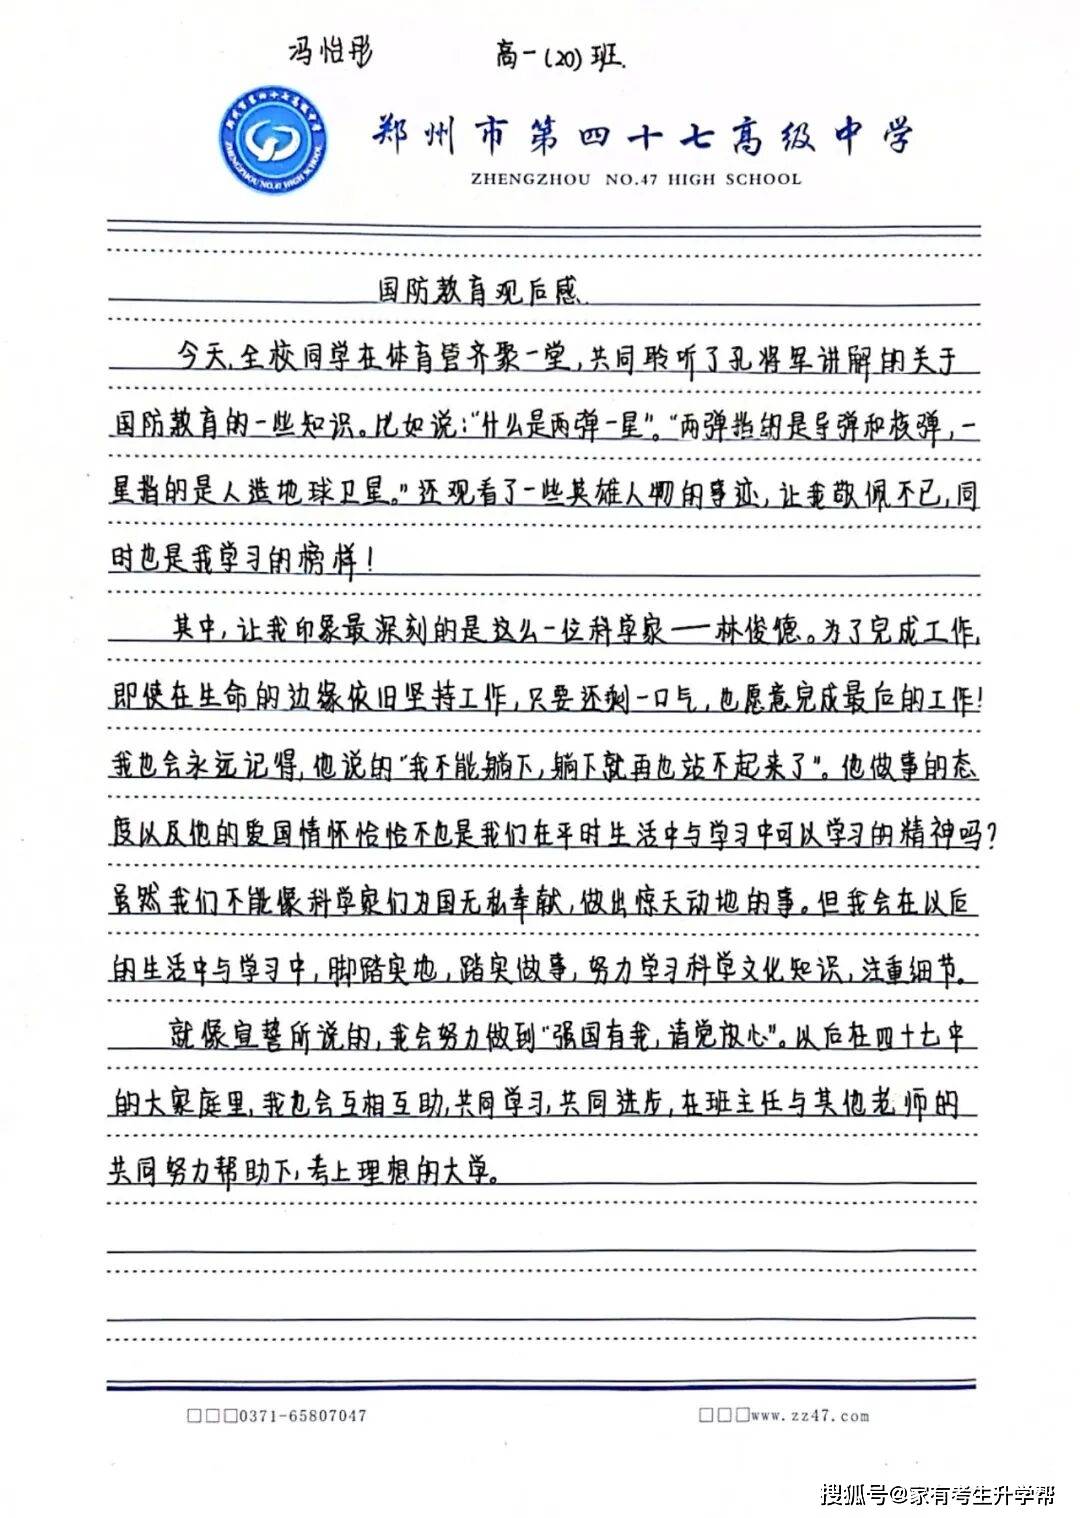 冯怡彤 高一(20)班.
郑州市第四十七高级中学
ZHENGZHOU NO.47 HIGH SCHOOL
国防教育观后感.
今天,全校同学在体育管齐聚一堂,共同聆听了孔将军讲解的关于
国防教育的一些知识。比如说:"什么是两弹一星"。"两弹指的是导弹和核弹,一
星指的是人造地球卫星。"还观看了一些英雄人物的事迹,让我敬佩不已,同
时也是我学习的榜样!
其中,让我印象最深刻的是这么一位科学家——林俊德。为了完成工作,
即使在生命的边缘依旧坚持工作,只要还剩一口气,也愿意完成最后的工作!
我也会永远记得,他说的"我不能躺下,躺下就再也站不起来了"。他做事的态
度以及他的爱国情怀恰恰不也是我们在平时生活中与学习中可以学习的精神吗?
虽然我们不能像科学家们为国无私奉献,做出惊天动地的事。但我会在以后
的生活中与学习中,脚踏实地,踏实做事,努力学习科学文化知识,注重细节。
就像宣誓所说的,我会努力做到"强国有我,请党放心"。以后在四十七中
的大家庭里,我也会互相互助,共同学习,共同进步,在班主任与其他老师的
共同努力帮助下,考上理想的大学。
□□□0371-65807047 □□□www.zz47.com
搜狐号@家有考生升学帮